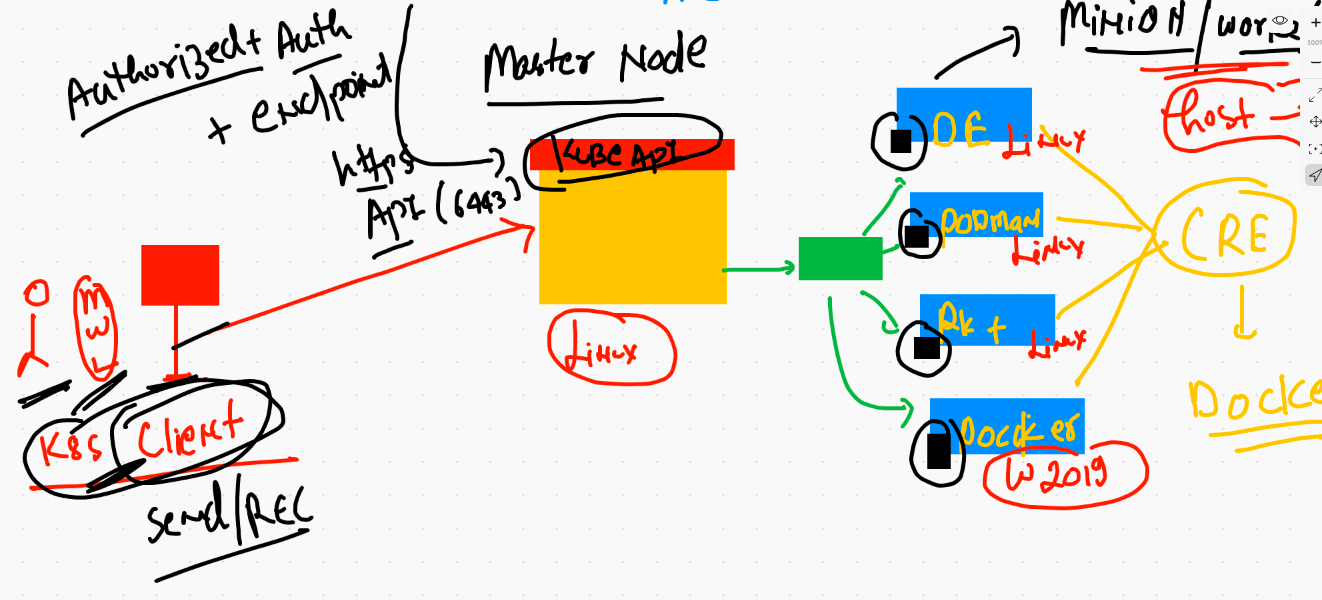 Authorized + Auth
+ endpoint
https
API (6443)
Master Node
KUBE API
Linux
M
W
L
K8s Client
send/REC
MINION/wor
host
DE Linux
PODMAN
Linux
RKt
Linux
Docker
W2019
CRE
Docke
100%